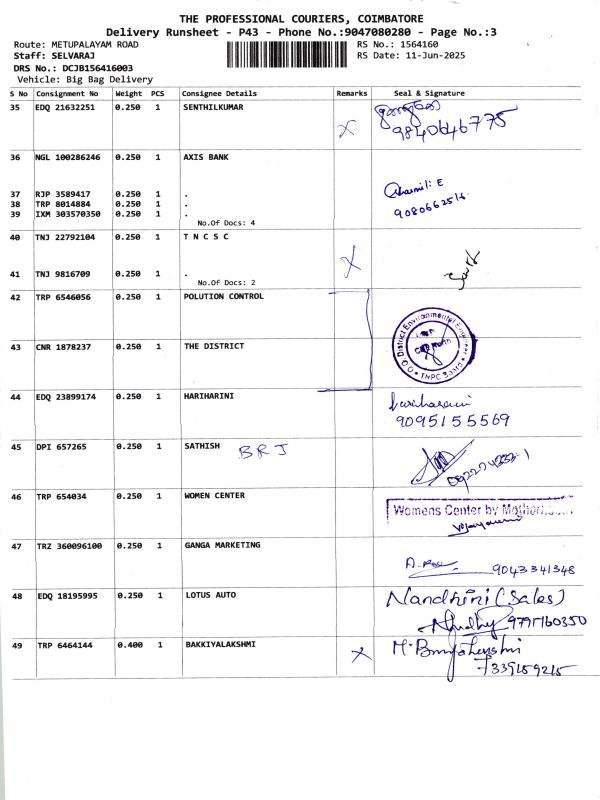 THE PROFESSIONAL COURIERS, COIMBATORE
Delivery Runsheet - P43 - Phone No.:9047080280 - Page No.:3
Route: METUPALAYAM ROAD RS No.: 1564160
Staff: SELVARAJ RS Date: 11-Jun-2025
DRS No.: DCJB156416003
Vehicle: Big Bag Delivery
S No Consignment No Weight PCS Consignee Details Remarks Seal & Signature
35 EDQ 21632251 0.250 1 SENTHILKUMAR
9840646775
36 NGL 100286246 0.250 1 AXIS BANK
37 RJP 3589417 0.250 1 .
38 TRP 8014884 0.250 1 .
39 IXM 303570350 0.250 1 .
No.Of Docs: 4
40 TNJ 22792104 0.250 1 T N C S C
41 TNJ 9816709 0.250 1 .
No.Of Docs: 2
42 TRP 6546056 0.250 1 POLUTION CONTROL
43 CNR 1878237 0.250 1 THE DISTRICT
44 EDQ 23899174 0.250 1 HARIHARINI
9095155569
45 DPI 657265 0.250 1 SATHISH BRJ
46 TRP 654034 0.250 1 WOMEN CENTER
Womens Center by
47 TRZ 360096100 0.250 1 GANGA MARKETING
9043341348
48 EDQ 18195995 0.250 1 LOTUS AUTO Nandhini (Sales)
9791160350
49 TRP 6464144 0.400 1 BAKKIYALAKSHMI